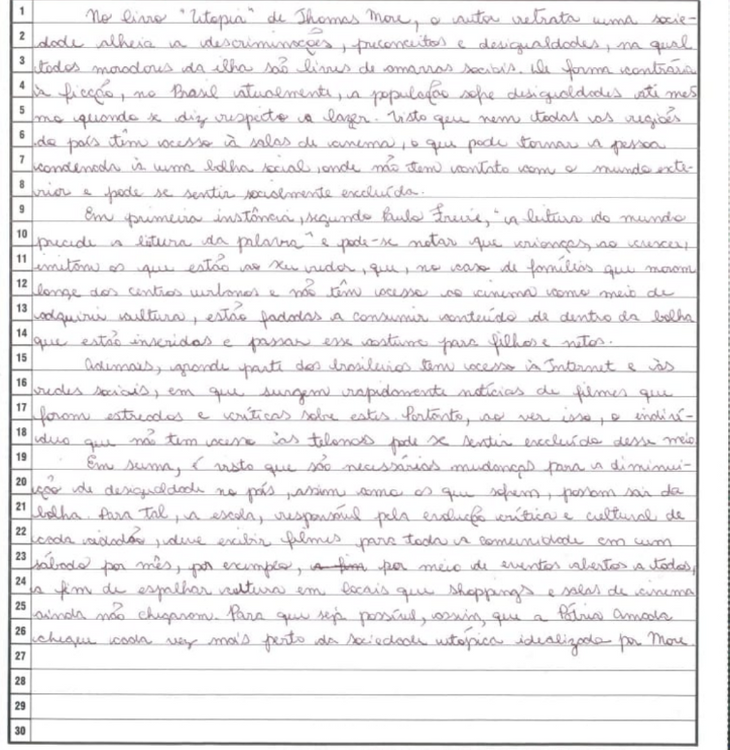 1 No livro "Utopia" de Thomas More, o autor retrata uma socie-
2 dade alheia a descriminações, preconceitos e desigualdades, na qual
3 todos moradores da ilha são livres de amarras sociais. De forma contrária
4 à ficção, no Brasil atualmente, a população sofre desigualdades até mes
5 mo quando se diz respeito a lazer. Visto qeu nem todas as regiões
6 do país têm acesso à salas de cinema, o qeu pode tornar a pessoa
7 condenada à uma bolha social, onde não tem contato com o mundo exte-
8 rior e pode se sentir socialmente excluída.
9 Em primeira instância, segundo Paulo Freire, "a leitura do mundo
10 precede a leitura da palavra" e pode-se notar que crianças, ao crescer,
11 imitam os que estão ao seu redor, que, no caso de famílias que moram
12 longe dos centros urbanos e não têm acesso ao cinema como meio de
13 adquirir cultura, estão fadadas a consumir conteúdo de dentro da bolha
14 que estão inseridas e passar esse costume para filhos e netos.
15 Ademais, grande parte dos brasileiros tem acesso à Internet e às
16 redes sociais, em que surgem rapidamente notícias de filmes que
17 foram estreados e críticas sobre estes. Portanto, ao ver isso, o indiví-
18 duo que não tem acesso às telonas pode se sentir excluído desse meio
19 Em suma, é visto que são necessárias mudanças para a diminui-
20 ção de desigualdade no país, assim como os que sofrem, possam sair da
21 bolha. Para tal, a escola, responsável pela evolução crítica e cultural de
22 cada cidadão, deve exibir filmes para toda a comunidade em um
23 sábado por mês, por exemplo, a fim por meio de eventos abertos a todos,
24 a fim de espalhar cultura em locais que shoppings e salas de cinema
25 ainda não chegaram. Para que seja possível, assim, que a Pátria Amada
26 chegue cada vez mais perto da sociedade utópica idealizada por More.
27
28
29
30